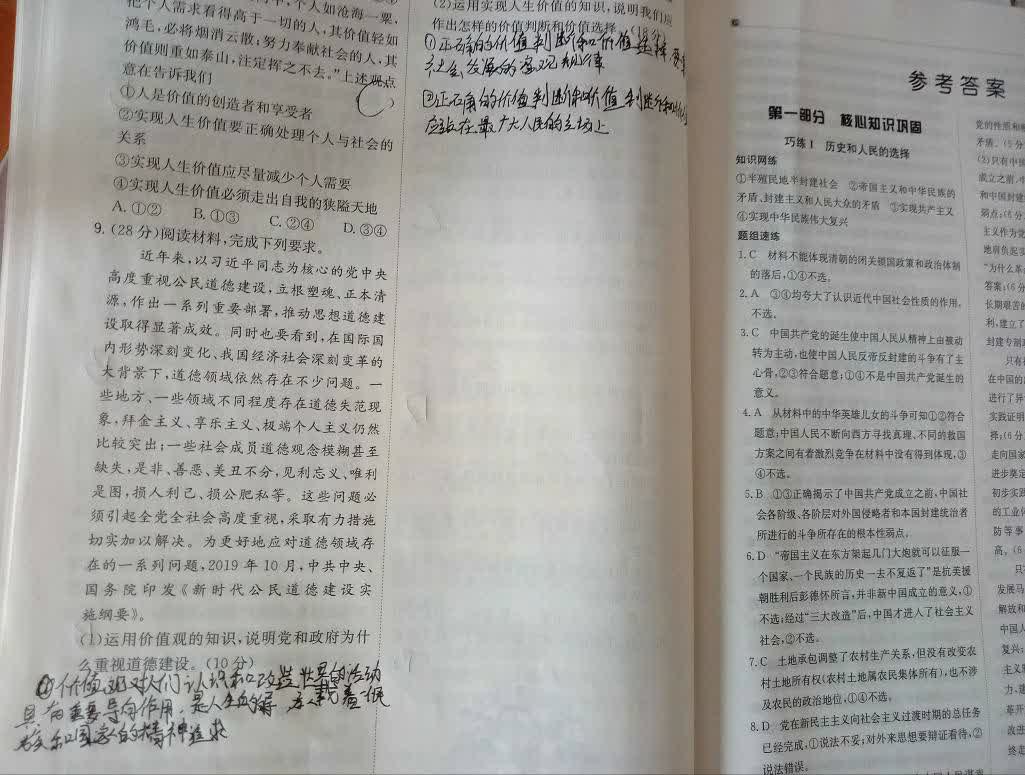 个人如沧海一粟,
把个人需求看得高于一切的人,其价值轻如
鸿毛,必将烟消云散;努力奉献社会的人,其
价值则重如泰山,注定挥之不去。”上述观点
意在告诉我们( C )
①人是价值的创造者和享受者
②实现人生价值要正确处理个人与社会的
关系
③实现人生价值应尽量减少个人需要
④实现人生价值必须走出自我的狭隘天地
A. ①② B. ①③ C. ②④ D. ③④
9. (28 分)阅读材料,完成下列要求。
近年来,以习近平同志为核心的党中央
高度重视公民道德建设,立根塑魂、正本清
源,作出一系列重要部署,推动思想道德建
设取得显著成效。同时也要看到,在国际国
内形势深刻变化、我国经济社会深刻变革的
大背景下,道德领域依然存在不少问题。一
些地方、一些领域不同程度存在道德失范现
象,拜金主义、享乐主义、极端个人主义仍然
比较突出;一些社会成员道德观念模糊甚至
缺失,是非、善恶、美丑不分,见利忘义、唯利
是图,损人利己、损公肥私等。这些问题必
须引起全党全社会高度重视,采取有力措施
切实加以解决。为更好地应对道德领域存
在的一系列问题,2019 年 10 月,中共中央、
国务院印发《新时代公民道德建设实
施纲要》。
(1)运用价值观的知识,说明党和政府为什
么重视道德建设。(10 分)
①价值观对人们认识和改造世界的活动
具有重要导向作用,是人生的
和国家的精神追求
(2)运用实现人生价值的知识,说明我们应
作出怎样的价值判断和价值选择。(18 分)
①正确的价值判断和价值选择,要
社会发展的客观规律
②正确的价值判断和价值判断和
应站在最广大人民的立场上
参考答案
第一部分 核心知识巩固
巧练 1 历史和人民的选择
知识网络
①半殖民地半封建社会 ②帝国主义和中华民族的
矛盾、封建主义和人民大众的矛盾 ③实现共产主义
④实现中华民族伟大复兴
题组速练
1. C 材料不能体现清朝的闭关锁国政策和政治体制
的落后,①④不选。
2. A ③④均夸大了认识近代中国社会性质的作用,
不选。
3. C 中国共产党的诞生使中国人民从精神上由被动
转为主动,也使中国人民反帝反封建的斗争有了主
心骨,②③符合题意;①④不是中国共产党诞生的
意义。
4. A 从材料中的中华英雄儿女的斗争可知①②符合
题意;中国人民不断向西方寻找真理、不同的救国
方案之间有着激烈竞争在材料中没有得到体现,③
④不选。
5. B ①③正确揭示了中国共产党成立之前,中国社
会各阶级、各阶层对外国侵略者和本国封建统治者
所进行的斗争所存在的根本性弱点。
6. D “帝国主义在东方架起几门大炮就可以征服一
个国家、一个民族的历史一去不复返了”是抗美援
朝胜利后彭德怀所言,并非新中国成立的意义,①
不选;经过“三大改造”后,中国才进入了社会主义
社会,②不选。
7. C 土地承包调整了农村生产关系,但没有改变农
村土地所有权(农村土地属农民集体所有),也不涉
及农民的政治地位,①④不选。
8. D 党在新民主主义向社会主义过渡时期的总任务
已经完成,①说法不妥;对外来思想要辩证看待,②
说法错误。
党的性质和
矛盾。(5分
(2)只有中
成立之前,中
和中国封建
弱点;(6分
主义作为党
地肩负起实
“为什么革
答案:(6分
长期艰苦的
利,建立了
封建专制
只有社
在中国的
进行了异
实践证明
择;(6分
走向国家
进步奠定
初步实践
的工业化
防等事
高。(6
只
发展马
解放和
中国人
复兴;
主义
力、建
辜开
改进
终走